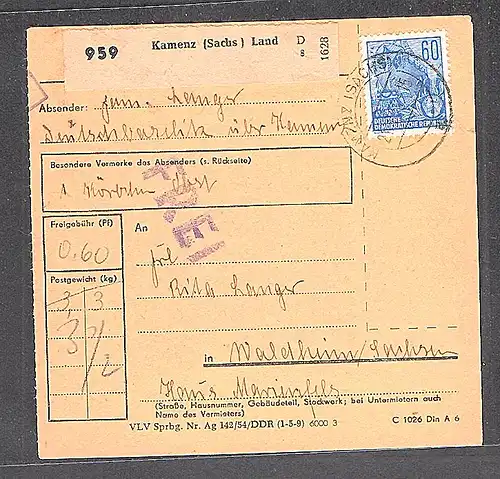 959 Kamenz (Sachs) Land D
s 1628
60
DEUTSCHE
DEMOKRATISCHE REPUBLIK
KAMENZ (SACHS)
Absender: Langer
über Kamenz
Besondere Vermerke des Absenders (s. Rückseite)
1 Körbchen Obst
Freigebühr (Pf)
0.60
An
Frl
Postgewicht (kg)
3, 3
Rita Langer
3 1/2
in Waldheim/Sachsen
Haus Marienfels
(Straße, Hausnummer, Gebäudeteil, Stockwerk; bei Untermietern auch
Name des Vermieters)
VLV Sprbg. Nr. Ag 142/54/DDR (1-5-9) 6000 3
C 1026 Din A 6